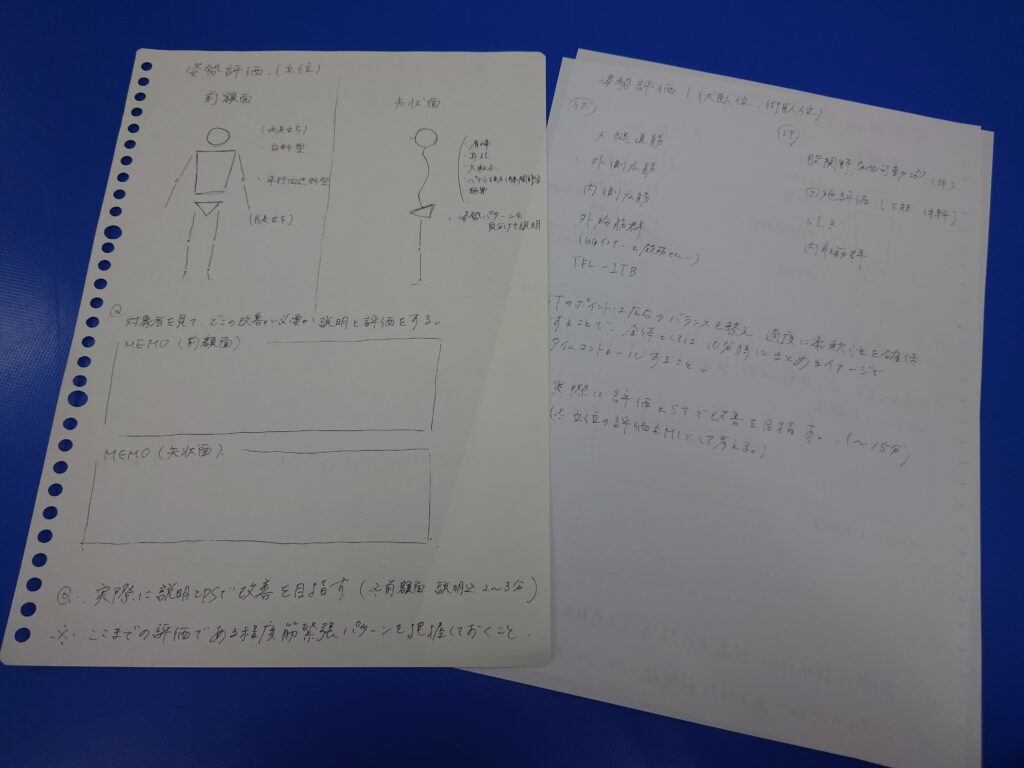 姿勢評価 (立位)
前額面
矢状面
(両足立ち)
・台形型
・平行四辺形型
(片足立ち)
耳垂
大転子
・姿勢パターンを
見分けて説明
Q
対象者を見て、どこの改善が必要か説明と評価をする。
MEMO (前額面)
MEMO (矢状面)
Q. 実際に説明とPSで改善を目指す (※前額面 説明込 2〜3分)
※. ここまでの評価である程度筋緊張パターンを把握しておくこと.
姿勢評価 (伏臥位、仰臥位)
伏
大腿直筋
・外側広筋
・内側広筋
・外旋筋群
・TFL-ITB
仰
回旋評価 (下肢 体幹)
SLR
内転筋群
STのポイントは左右のバランスを整え、適度に柔軟性を確保
することで、全体としては10分弱にまとめるイメージで
タイムコントロールすること。
実際に評価とSTで改善を目指す。(〜15分)
(※立位の評価もMIXして考える。)